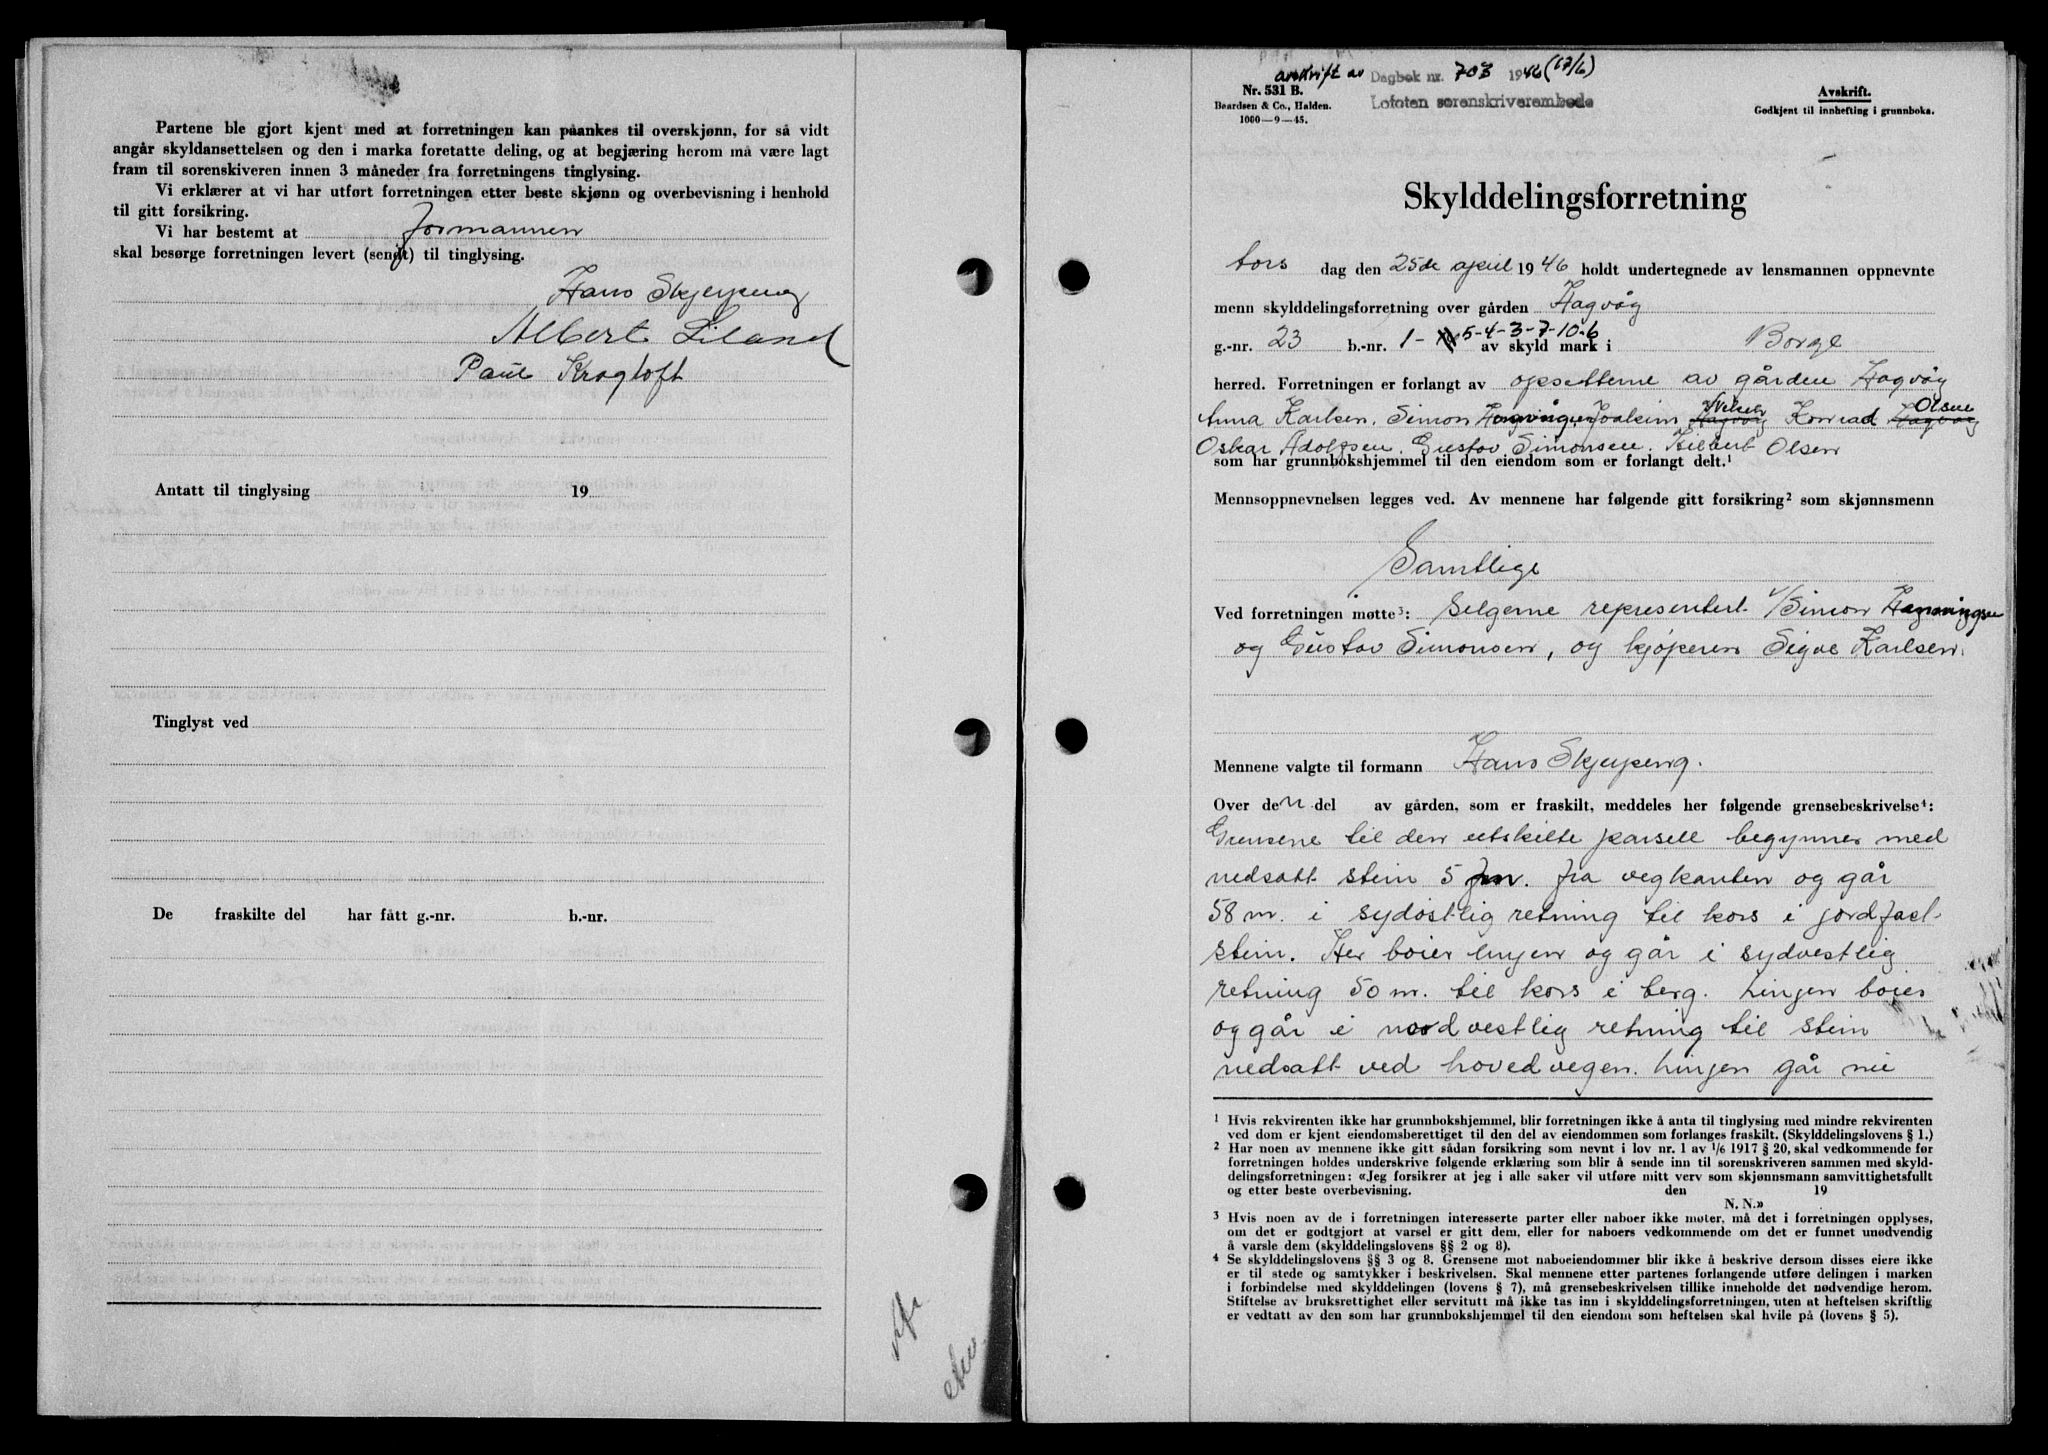 Partene ble gjort kjent med at forretningen kan påankes til overskjønn, for så vidt
angår skyldansettelsen og den i marka foretatte deling, og at begjæring herom må være lagt
fram til sorenskiveren innen 3 måneder fra forretningens tinglysing.
Vi erklærer at vi har utført forretningen etter beste skjønn og overbevisning i henhold
til gitt forsikring.
Vi har bestemt at formannen
skal besørge forretningen levert (sendt) til tinglysing.
Hans Skjerpeng
Albert Liland
Paul Kragtoft
Antatt til tinglysing 19
Tinglyst ved
De fraskilte del har fått g.-nr. b.-nr.
avskrift av Dagbok nr. 703 1946 (17/6)
Nr. 531 B.
Lofoten sorenskriverembede
Beardsen & Co., Halden.
1000—9—45.
Avskrift.
Godkjent til innhefting i grunnboka.
Skylddelingsforretning
tors dag den 25de april 1946 holdt undertegnede av lensmannen oppnevnte
menn skylddelingsforretning over gården Hagvåg
g.-nr. 23 b.-nr. 1- 5-4-3-7-10-6 av skyld mark i Borge
herred. Forretningen er forlangt av opsetterne av gården Hagvåg
Anna Karlsen. Simon Joakim Konrad Olsen
Oskar Adolfsen. Gustav Simonsen. Hilbert Olsen
som har grunnbokshjemmel til den eiendom som er forlangt delt.¹
Mennsoppnevnelsen legges ved. Av mennene har følgende gitt forsikring² som skjønnsmenn
Samtlige
Ved forretningen møtte³: Selgerne representert v/Simon
og Gustav Simonsen, og kjøperen Sigve Karlsen.
Mennene valgte til formann Hans Skjerpeng.
Over den del av gården, som er fraskilt, meddeles her følgende grensebeskrivelse⁴:
Grensene til den utskilte parsell begynner med
nedsatt stein 5 m. fra vegkanten og går
58 m. i sydøstlig retning til kors i jordfast
stein. Her bøier linjen og går i sydvestlig
retning 50 m. til kors i berg. Linjen bøies
og går i nordvestlig retning til stein
nedsatt ved hovedvegen. Linjen går nu
¹ Hvis rekvirenten ikke har grunnbokshjemmel, blir forretningen ikke å anta til tinglysing med mindre rekvirenten
ved dom er kjent eiendomsberettiget til den del av eiendommen som forlanges fraskilt. (Skylddelingslovens § 1.)
² Har noen av mennene ikke gitt sådan forsikring som nevnt i lov nr. 1 av 1/6 1917 § 20, skal vedkommende før
forretningen holdes underskrive følgende erklæring som blir å sende inn til sorenskriveren sammen med skyld-
delingsforretningen: «Jeg forsikrer at jeg i alle saker vil utføre mitt verv som skjønnsmann samvittighetsfullt
og etter beste overbevisning. den 19
N. N.»
³ Hvis noen av de i forretningen interesserte parter eller naboer ikke møter, må det i forretningen opplyses,
om det er godtgjort at varsel er gitt dem, eller for naboers vedkommende om det er funnet unødvendig
å varsle dem (skylddelingslovens §§ 2 og 8).
⁴ Se skylddelingslovens §§ 3 og 8. Grensene mot naboeiendommer blir ikke å beskrive dersom disses eiere ikke
er til stede og samtykker i beskrivelsen. Skal mennene etter partenes forlangende utføre delingen i marken
i forbindelse med skylddelingen (lovens § 7), må grensebeskrivelsen tillike inneholde det nødvendige herom.
Stiftelse av bruksrettighet eller servitutt må ikke tas inn i skylddelingsforretningen, uten at heftelsen skriftlig
er vedtatt av den som har grunnbokshjemmel til den eiendom som heftelsen skal hvile på (lovens § 5).